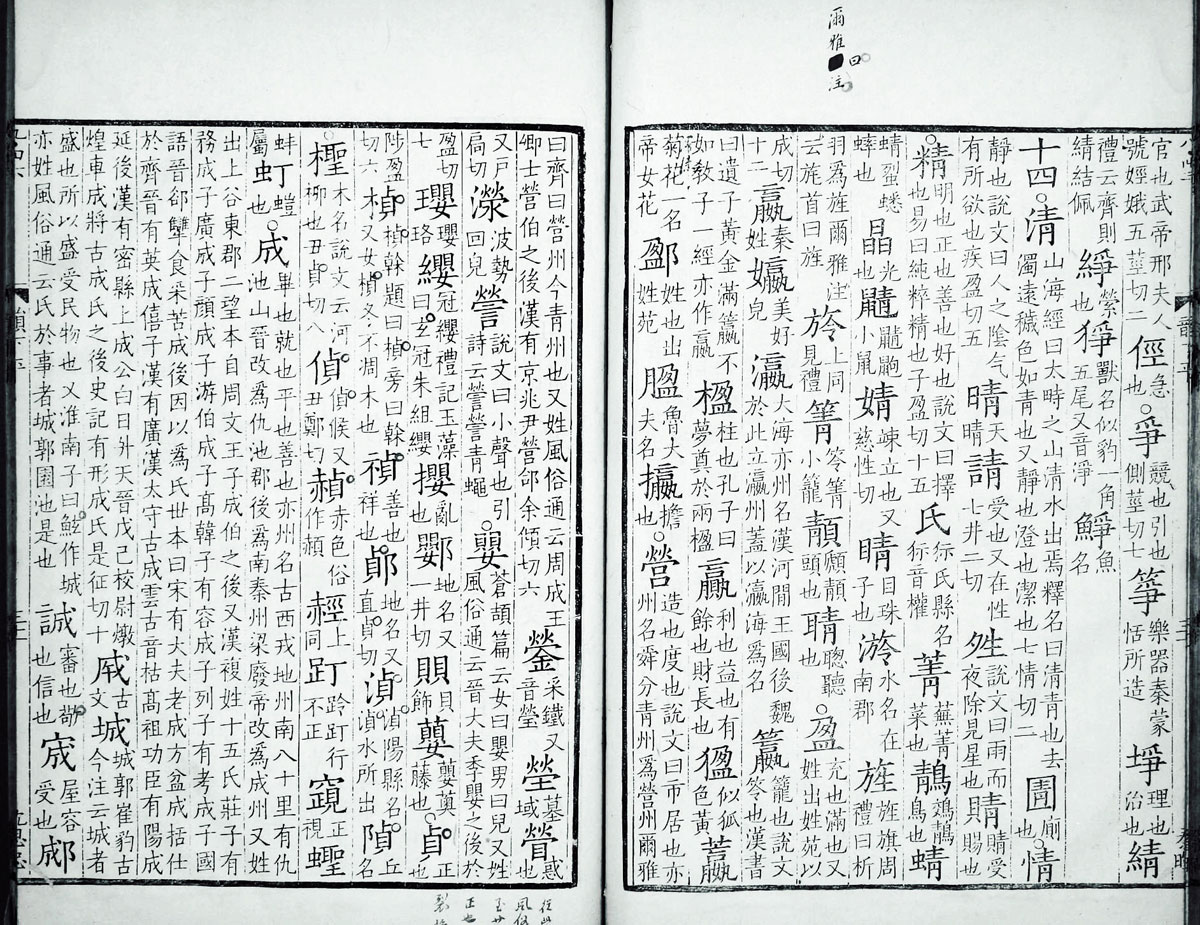 爾雅曰
注
官也武帝邢夫人號娙娥五莖切二 俓急也○爭競也引也側莖切七 箏樂器秦蒙恬所造 埩理也治也 綪
禮云齊則綪結佩 縈也 猙獸名似豹一角五尾又音淨 魚名
十四○清山海經曰太時之山清水出焉釋名曰清青也去濁遠穢色如青也又靜也澄也潔也七情切二 圊廁也○情
靜也說文曰人之陰气有所欲也疾盈切五 晴天晴 請受也又在性七井二切 夝說文曰雨而夜除見星也 䝼䝼受賜也
○精明也正也善也好也說文曰擇也易曰純粹精也子盈切十五 氏狋氏縣名狋音權 菁蕪菁菜也 鶄鵁鶄鳥也 蜻
蜻蛚蟋蟀也 晶光也 鼱鼱鼩小鼠 婧竦立也又慈性切 睛目珠子也 水名在南郡 旌旌旗周禮曰析
羽爲旌爾雅注云旄首曰旌 旍上同見禮 箐笭箐小籠 頭也 聙聰聽也○盈充也滿也又姓出姓苑以
成切十二 嬴秦姓 㜲美好皃 瀛大海亦州名漢河間王國後魏於此立瀛州蓋以瀛海爲名 籯籠也說文笭也漢書
曰遺子黃金滿籯不如教子一經亦作籝 楹柱也孔子曰夢奠於兩楹 贏利也益也有餘也財長也 似狐色黃
菊花一名帝女花 姓也出姓苑 魯大夫名 攍擔也○營造也度也說文曰帀居也亦州名舜分青州爲營州爾雅
曰齊曰營州今青州也又姓風俗通云周成王卿士營伯之後漢有京兆尹營郃余傾切六 鎣采鐵又音瑩 塋墓域 謍惑也
又戶扃切 濙波勢回皃 謍說文曰小聲也引詩云謍謍青蠅○嬰蒼頡篇云女曰嬰男曰兒又姓風俗通云晉大夫季嬰之後於
盈切七 瓔瓔珞 纓冠纓禮記玉藻曰玄冠朱組纓 攖亂也 鄾地名又一井切 賏貝飾 蘡蘡薁藤也○貞正也
陟盈切六 楨楨榦題曰楨旁曰榦又女楨冬不凋木也 禎善也祥也 鄖地名又直貞切 湞湞陽縣名丘湞水所出 隕名
檉木名說文云河柳也丑貞切八 偵偵候又丑鄭切 赬赤色俗作頳 䞓上同 䟓跉䟓行不正 窺正視 蟶
蚌屬 虰虰蛵也○成畢也就也平也善也亦州名古西戎地州南八十里有仇池山晉改爲仇池郡後爲南秦州梁廢帝改爲成州又姓
出上谷東郡二望本自周文王子成伯之後又漢複姓十五氏莊子有務成子廣成子顏成子游伯成子高韓子有容成子列子有考成子國
語晉郤犫食采苦成後因以爲氏世本曰宋有大夫老成方盆成括仕於齊晉有英成僖子漢有廣漢太守古成雲古音枯高祖功臣有陽成
延後漢有密縣上成公白日升天晉戊己校尉燉煌車成將古成氏之後史記有形成氏是征切十 𢦩古文 城城郭崔豹古今注云城者
盛也所以盛受民物也又淮南子曰鮌作城亦姓風俗通云氏於事者城郭園池是也 誠審也敬也信也 宬屋容受也 郕